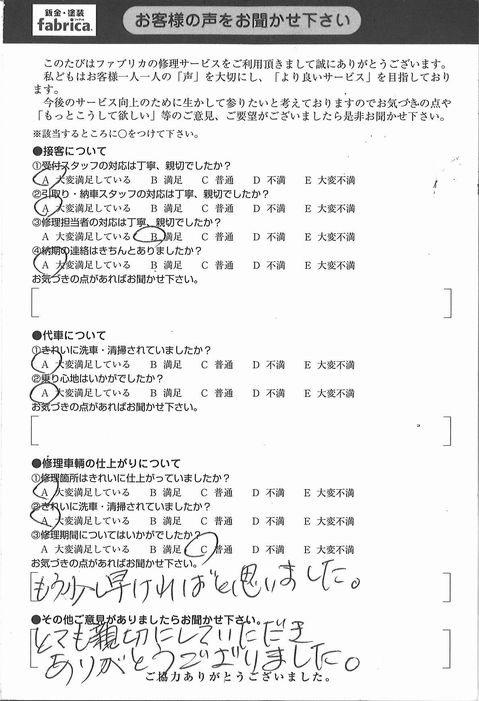 鈑金・塗装
fabrica.
お客様の声をお聞かせ下さい
このたびはファブリカの修理サービスをご利用頂きまして誠にありがとうございます。
私どもはお客様一人一人の「声」を大切にし、「より良いサービス」を目指しており
ます。
今後のサービス向上のために生かして参りたいと考えておりますのでお気づきの点や
「もっとこうして欲しい」等のご意見、ご要望がございましたら是非お聞かせ下さい。
※該当するところに○をつけて下さい。
●接客について
①受付スタッフの対応は丁寧、親切でしたか？
A 大変満足している B 満足 C 普通 D 不満 E 大変不満
②引取り・納車スタッフの対応は丁寧、親切でしたか？
A 大変満足している B 満足 C 普通 D 不満 E 大変不満
③修理担当者の対応は丁寧、親切でしたか？
A 大変満足している B 満足 C 普通 D 不満 E 大変不満
④納期の連絡はきちんとありましたか？
A 大変満足している B 満足 C 普通 D 不満 E 大変不満
お気づきの点があればお聞かせ下さい。
●代車について
①きれいに洗車・清掃されていましたか？
A 大変満足している B 満足 C 普通 D 不満 E 大変不満
②乗り心地はいかがでしたか？
A 大変満足している B 満足 C 普通 D 不満 E 大変不満
お気づきの点があればお聞かせ下さい。
●修理車輌の仕上がりについて
①修理箇所はきれいに仕上がっていましたか？
A 大変満足している B 満足 C 普通 D 不満 E 大変不満
②きれいに洗車・清掃されていましたか？
A 大変満足している B 満足 C 普通 D 不満 E 大変不満
③修理期間についてはいかがでしたか？
A 大変満足している B 満足 C 普通 D 不満 E 大変不満
お気づきの点があればお聞かせ下さい。
もう少し早ければと思いました。
●その他ご意見がありましたらお聞かせ下さい。
とても親切にしていただき
ありがとうございました。
ご協力ありがとうございました。